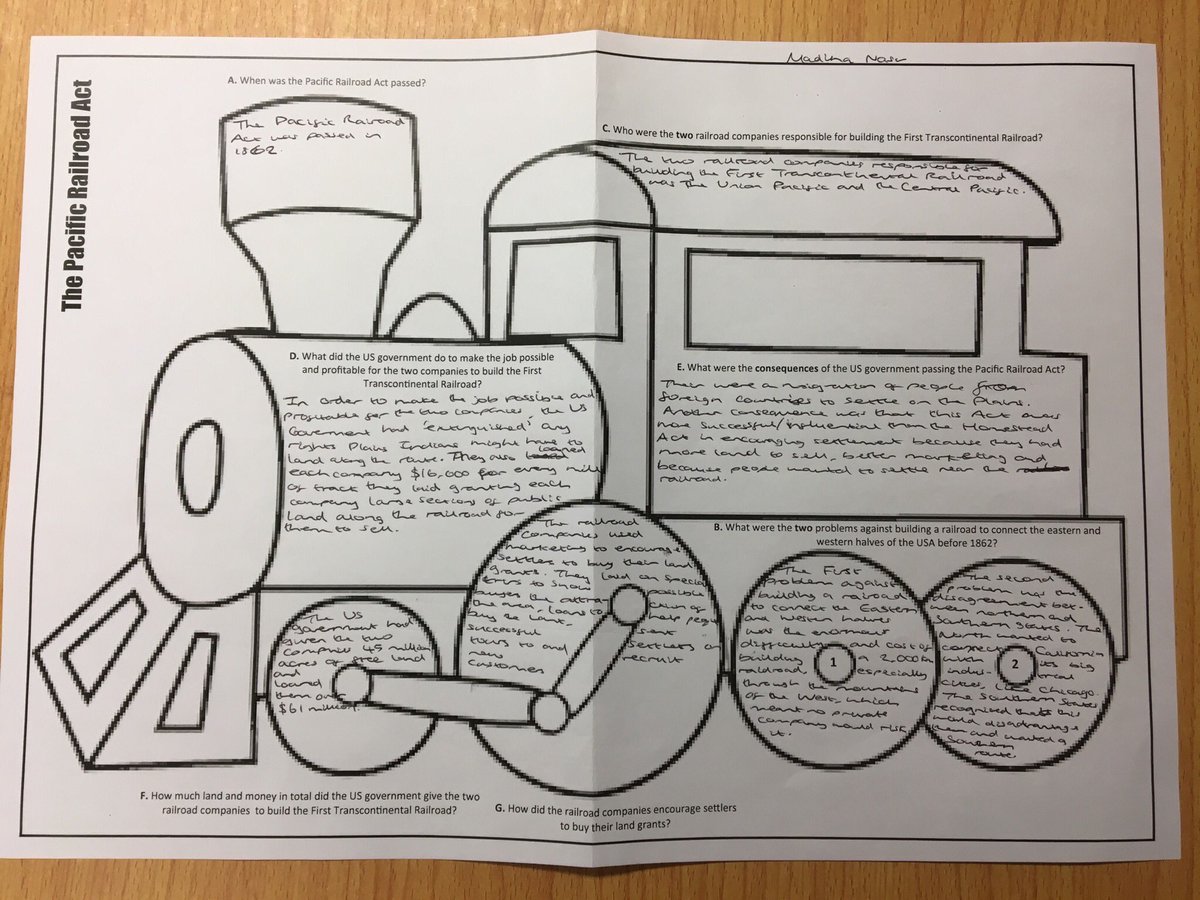 Madina Nasr
The Pacific Railroad Act
A. When was the Pacific Railroad Act passed?
The Pacific Railroad
Act was passed in
1862.
C. Who were the two railroad companies responsible for building the First Transcontinental Railroad?
The two railroad companies responsible for
building the First Transcontinental Railroad
was The Union Pacific and the Central Pacific.
D. What did the US government do to make the job possible
and profitable for the two companies to build the First
Transcontinental Railroad?
In order to make the job possible and
profitable for the two companies, the US
Government had 'extinguished' any
rights Plains Indians might have to
land along the route. They also loaned
each company $16,000 for every mile
of track they laid granting each
company large sections of public
land along the railroad for
them to sell.
E. What were the consequences of the US government passing the Pacific Railroad Act?
Their were a migration of people from
foreign countries to settle on the Plains.
Another consequence was that this Act was
more successful/influential than the Homestead
Act in encouraging settlement because they had
more land to sell, better marketing and
because people wanted to settle near the
railroad.
B. What were the two problems against building a railroad to connect the eastern and
western halves of the USA before 1862?
The First
problem against
building a railroad
to connect the Eastern
and Western halves
was the enormous
difficulty and cost of
building a 2,000
railroad, especially
through the mountains
of the West, which
meant no private
company would risk
it.
1
The second
problem was the
disagreement bet-
ween northern and
Southern States. The
North wanted to
connect California
with its big
indus- trial
cities, like Chicago.
The Southern States
recognised that this
would disadvantage
them and wanted a
Southern
route
2
The railroad
companies used
marketing to encourage
settlers to buy their land
grants. They laid on special
trips to show possible
buyers the
the area, loans to help
buy the land,
successful sent
tours to and settlers
new recruit
customer
The US
government had
given the two
companies 45 million
acres of free land
and
loaned
them over
$61 million.
F. How much land and money in total did the US government give the two
railroad companies to build the First Transcontinental Railroad?
G. How did the railroad companies encourage settlers
to buy their land grants?